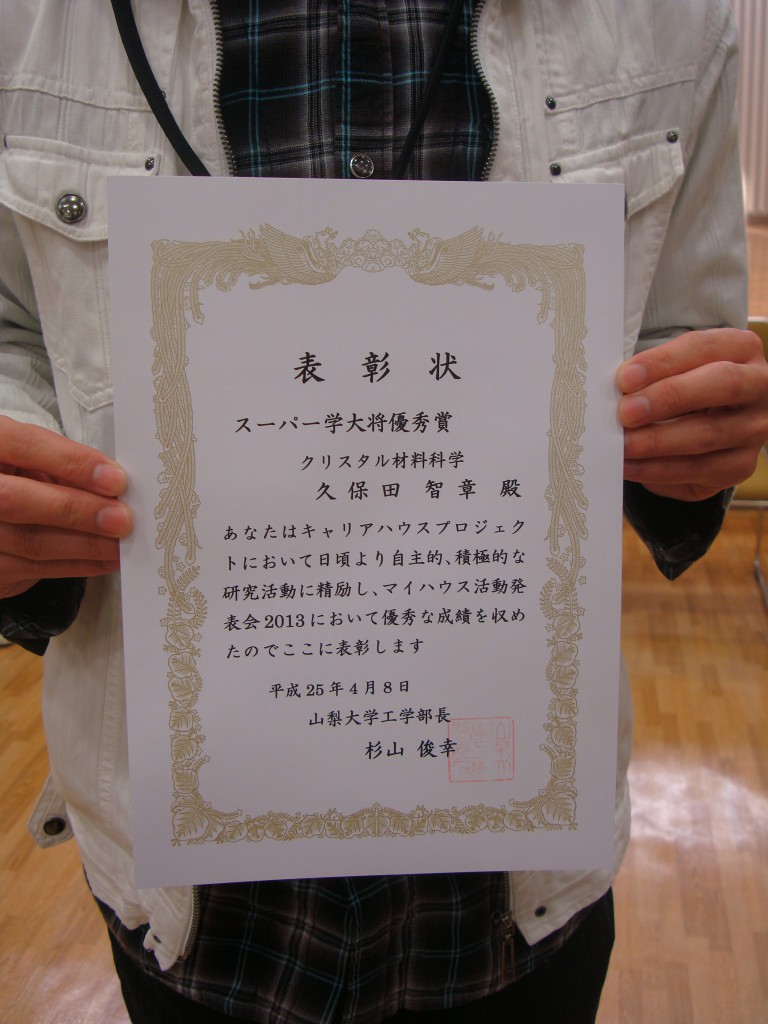 表彰状
スーパー学大将優秀賞
クリスタル材料科学
久保田 智章 殿
あなたはキャリアハウスプロジェク
トにおいて日頃より自主的、積極的な
研究活動に精励し、マイハウス活動発
表会2013において優秀な成績を収め
たのでここに表彰します
平成25年4月8日
山梨大学工学部長
杉山 俊幸